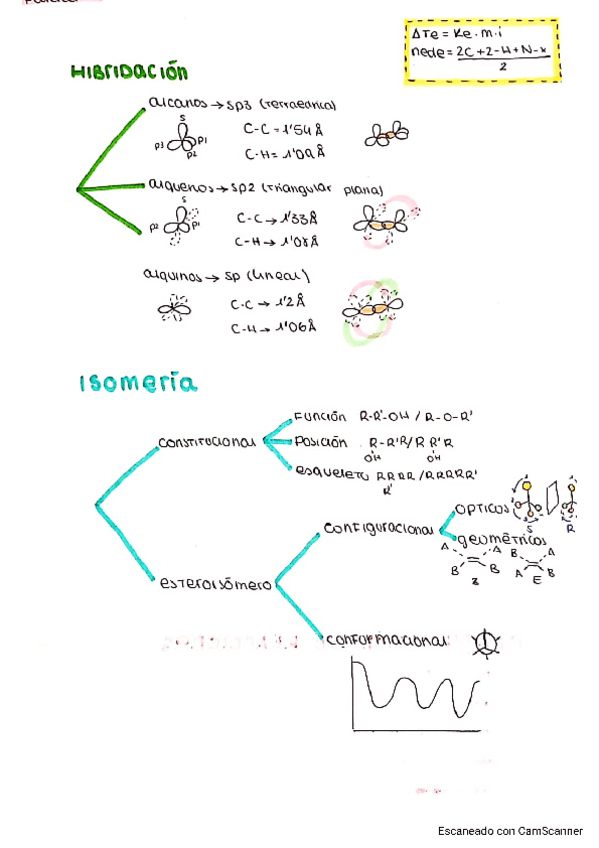 ΔTe = Ke · m · i
nede = 2C + 2 - H + N - x
2
HIBRIDACIÓN
alcanos → sp3 (tetraédrica)
S
p3 p1
p2
C-C = 1'54 Å
C-H = 1'09 Å
alquenos → sp2 (triangular plana)
S
p2 p1
C-C → 1'33 Å
C-H → 1'08 Å
alquinos → sp (lineal)
C-C → 1'2 Å
C-H → 1'06 Å
Isomería
constitucional
Función R-R'-OH / R-O-R'
Posición R-R'R / R R'R
OH OH
esqueleto RRRR / RRRRR'
R'
esteroisómero
configuracional
OPTICOS
S R
geométricos
A A B A
B B A B
Z E
conformacional
Escaneado con CamScanner